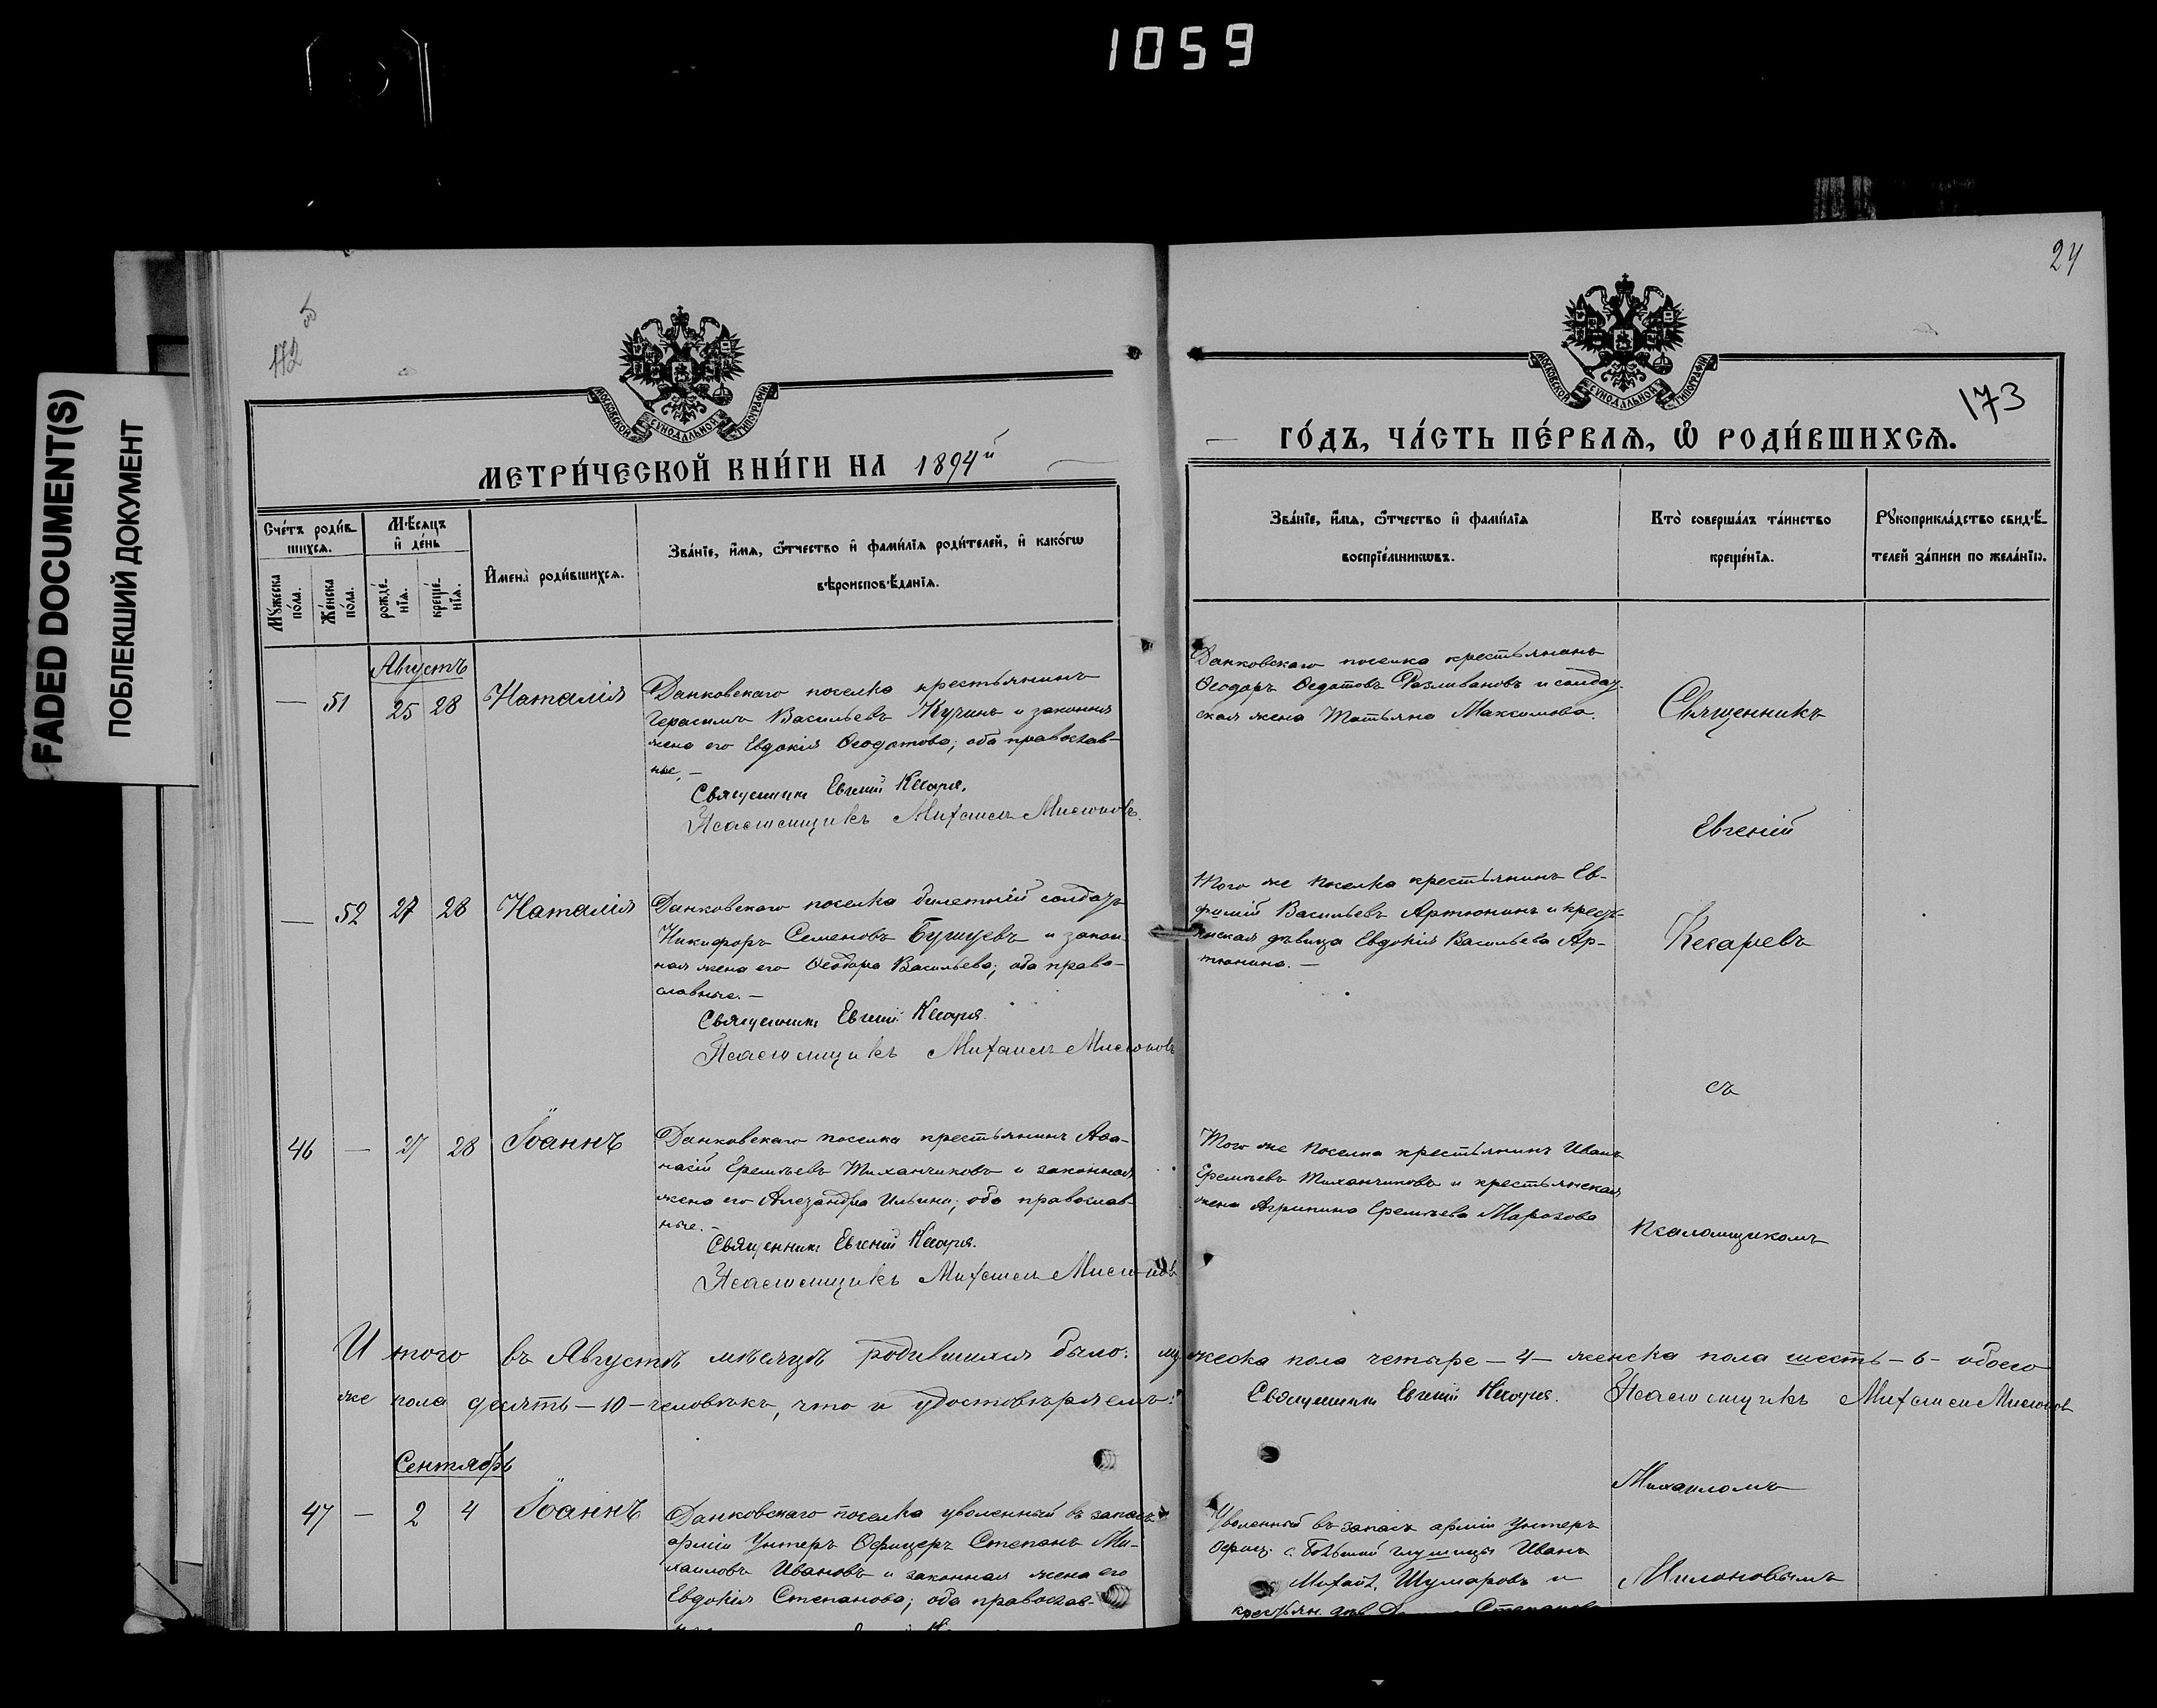 1059
FADED DOCUMENT(S)
ПОБЛЕКШИЙ ДОКУМЕНТ
24
172
173
МОСКОВСКОЙ СѴНОДАЛЬНОЙ ТИПОГРАФІИ
МОСКОВСКОЙ СѴНОДАЛЬНОЙ ТИПОГРАФІИ
МЕТРИ́ЧЕСКОЙ КНИ́ГИ НА 1894й
ГО́ДЪ, ЧА́СТЬ ПЕ́РВАѦ, Ѽ РОДИ́ВШИХСѦ.
Сче́тъ роди́в-
шихсѧ.
Мꙋ́жеска по́ла.
Же́нска по́ла.
Мѣ́сѧцъ
и҆ де́нь
рожде́-
нїѧ.
креще́-
нїѧ.
И҆мена̀ роди́вшихсѧ.
Зва́нїе, и҆́мѧ, ѻ҆́тчество и҆ фами́лїѧ роди́телей, и҆ како́гѡ
вѣроисповѣ́данїѧ.
Зва́нїе, и҆́мѧ, ѻ҆́тчество и҆ фами́лїѧ
воспрїе́мникѡвъ.
Кто̀ соверша́лъ та́инство
креще́нїѧ.
Рꙋкоприкла́дство свидѣ́-
телей за́писи по жела́нїю.
Августъ
— 51 25 28 Наталія
Данковскаго поселка крестьянинъ
Герасимъ Васильевъ Кучинъ и законная
жена его Евдокія Ѳеодотова; оба православ-
ные. —
Священникъ Евгеній Кесарев.
Псаломщикъ Михаилъ Милоновъ.
Данковскаго поселка крестьянинъ
Ѳеодоръ Ѳедотовъ Разливановъ и солдат-
ская жена Татьяна Максимова.
— 52 27 28 Наталія
Данковскаго поселка билетный солдатъ
Никифоръ Семеновъ Бушуевъ и закон-
ная жена его Ѳеодора Васильева; оба право-
славные. —
Священникъ Евгеній Кесарев.
Псаломщикъ Михаилъ Милоновъ
Того же поселка крестьянинъ Ев-
фимій Васильевъ Артюнинъ и кресть-
янская дѣвица Евдокія Васильева Ар-
тюнина. —
46 — 27 28 Іоаннъ
Данковскаго поселка крестьянинъ Аѳа-
насій Еремѣевъ Тиханчиковъ и законная
жена его Александра Ильина; оба православ-
ные. —
Священникъ Евгеній Кесарев.
Псаломщикъ Михаилъ Милоновъ
Того же поселка крестьянинъ Иванъ
Еремѣевъ Тиханчиковъ и крестьянская
жена Агрипина Еремѣева Марозова
Священникъ
Евгеній
Кесаревъ
съ
псаломщикомъ
Михаиломъ
Милоновымъ
Итого въ Августѣ мѣсяцѣ родившихся было: мужеска пола четыре — 4 — женска пола шесть — 6 — обоего
же пола десять — 10 — человѣкъ, что и удостовѣряемъ:
Священникъ Евгеній Кесарев. Псаломщикъ Михаилъ Милоновъ
Сентябрь
47 — 2 4 Іоаннъ
Данковскаго поселка уволенный въ запасъ
арміи Унтеръ Офицеръ Степанъ Ми-
хаиловъ Ивановъ и законная жена его
Евдокія Степанова; оба православ-
Уволенный въ запасъ арміи Унтеръ
Офиц. с. Большой глушицы Иванъ
Михаил. Шумаровъ и
крестьян. дѣв.